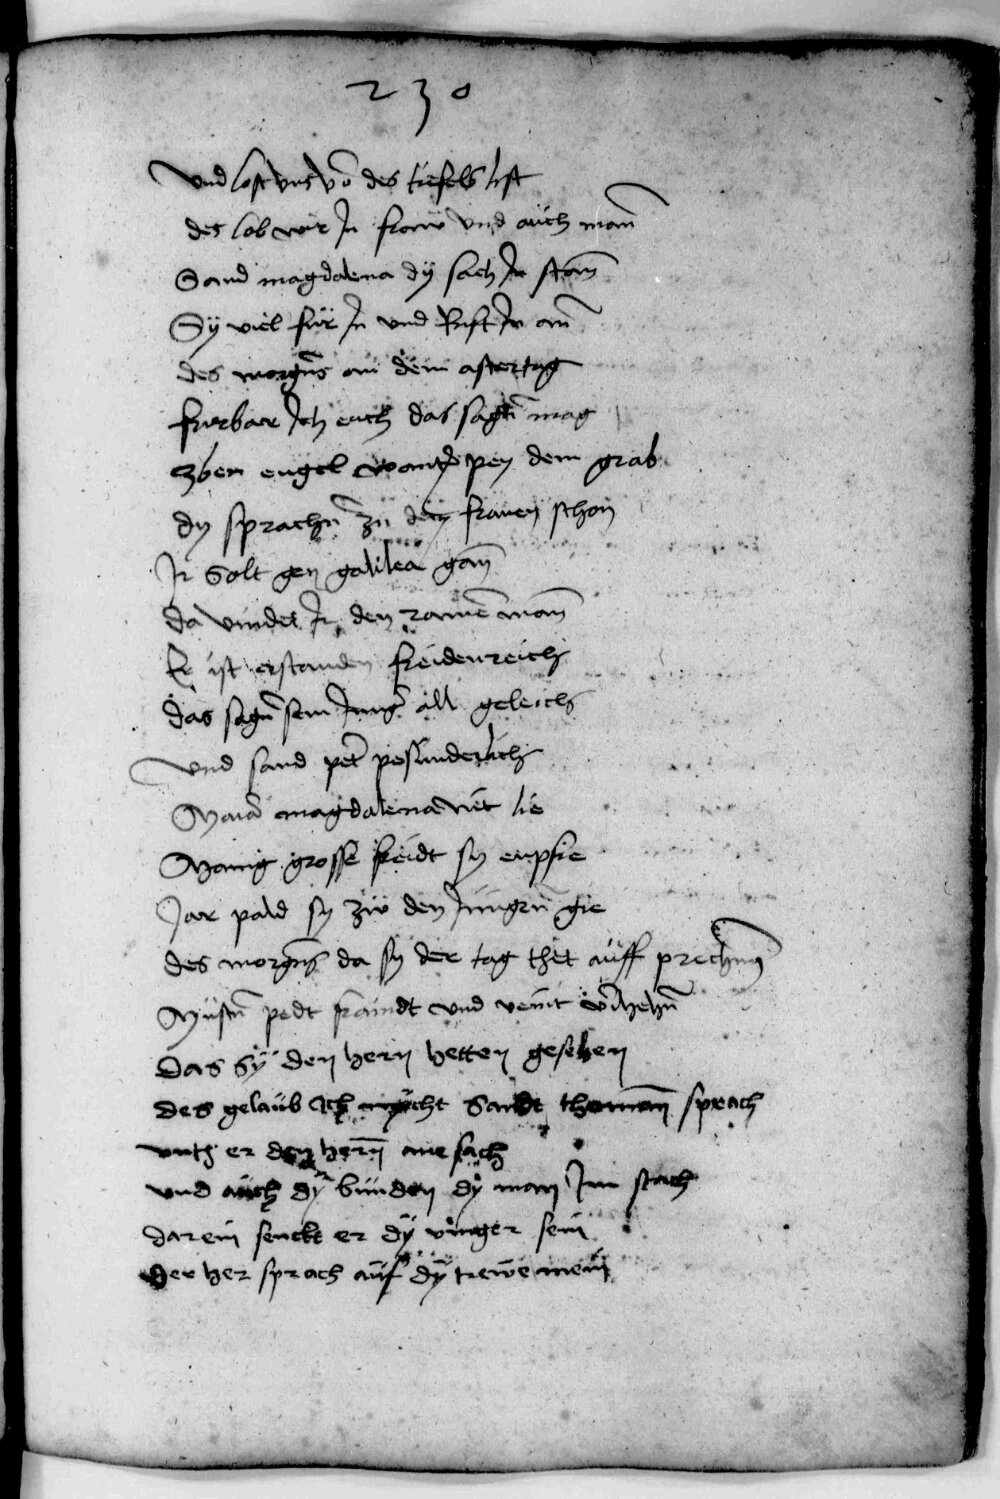 230
Vnd lost vns vō des tiefels list
des lob wir In fraw vnd aúch mañ
Sand magdalena dÿ sach In stāñ
Sÿ viel fúr In vnd Rúft In añ
des morgñs an dem astertag
fúrbar Ich euch das sagñ mag
zben engel pey dem grab
dy sprachñ zú den fraúen schon
Ir Solt gen galilea gañ
da vindet Ir den mañ
Er ist erstanden freidenreich
das sagñ sein Iunḡ all geleich
Vnd sand pet̄ pesúnderlich
magdalena nit lie
Manig grosse freidt sy enpfie
Gar pald sy zw den Iúngerñ gie
des morgñs da sy der tag thet aúff prechñ
pedt fraindt vnd
Das Sÿ den hern hetten gesehen
des gelaúb Ich nicht Sandt thomañ sprach
vntz er den herñ ane sach
vnd aúch dÿ búnden dÿ man Im stach
darein senckt er dÿ vinger sein
Der her sprach aúf dÿ trewe mein